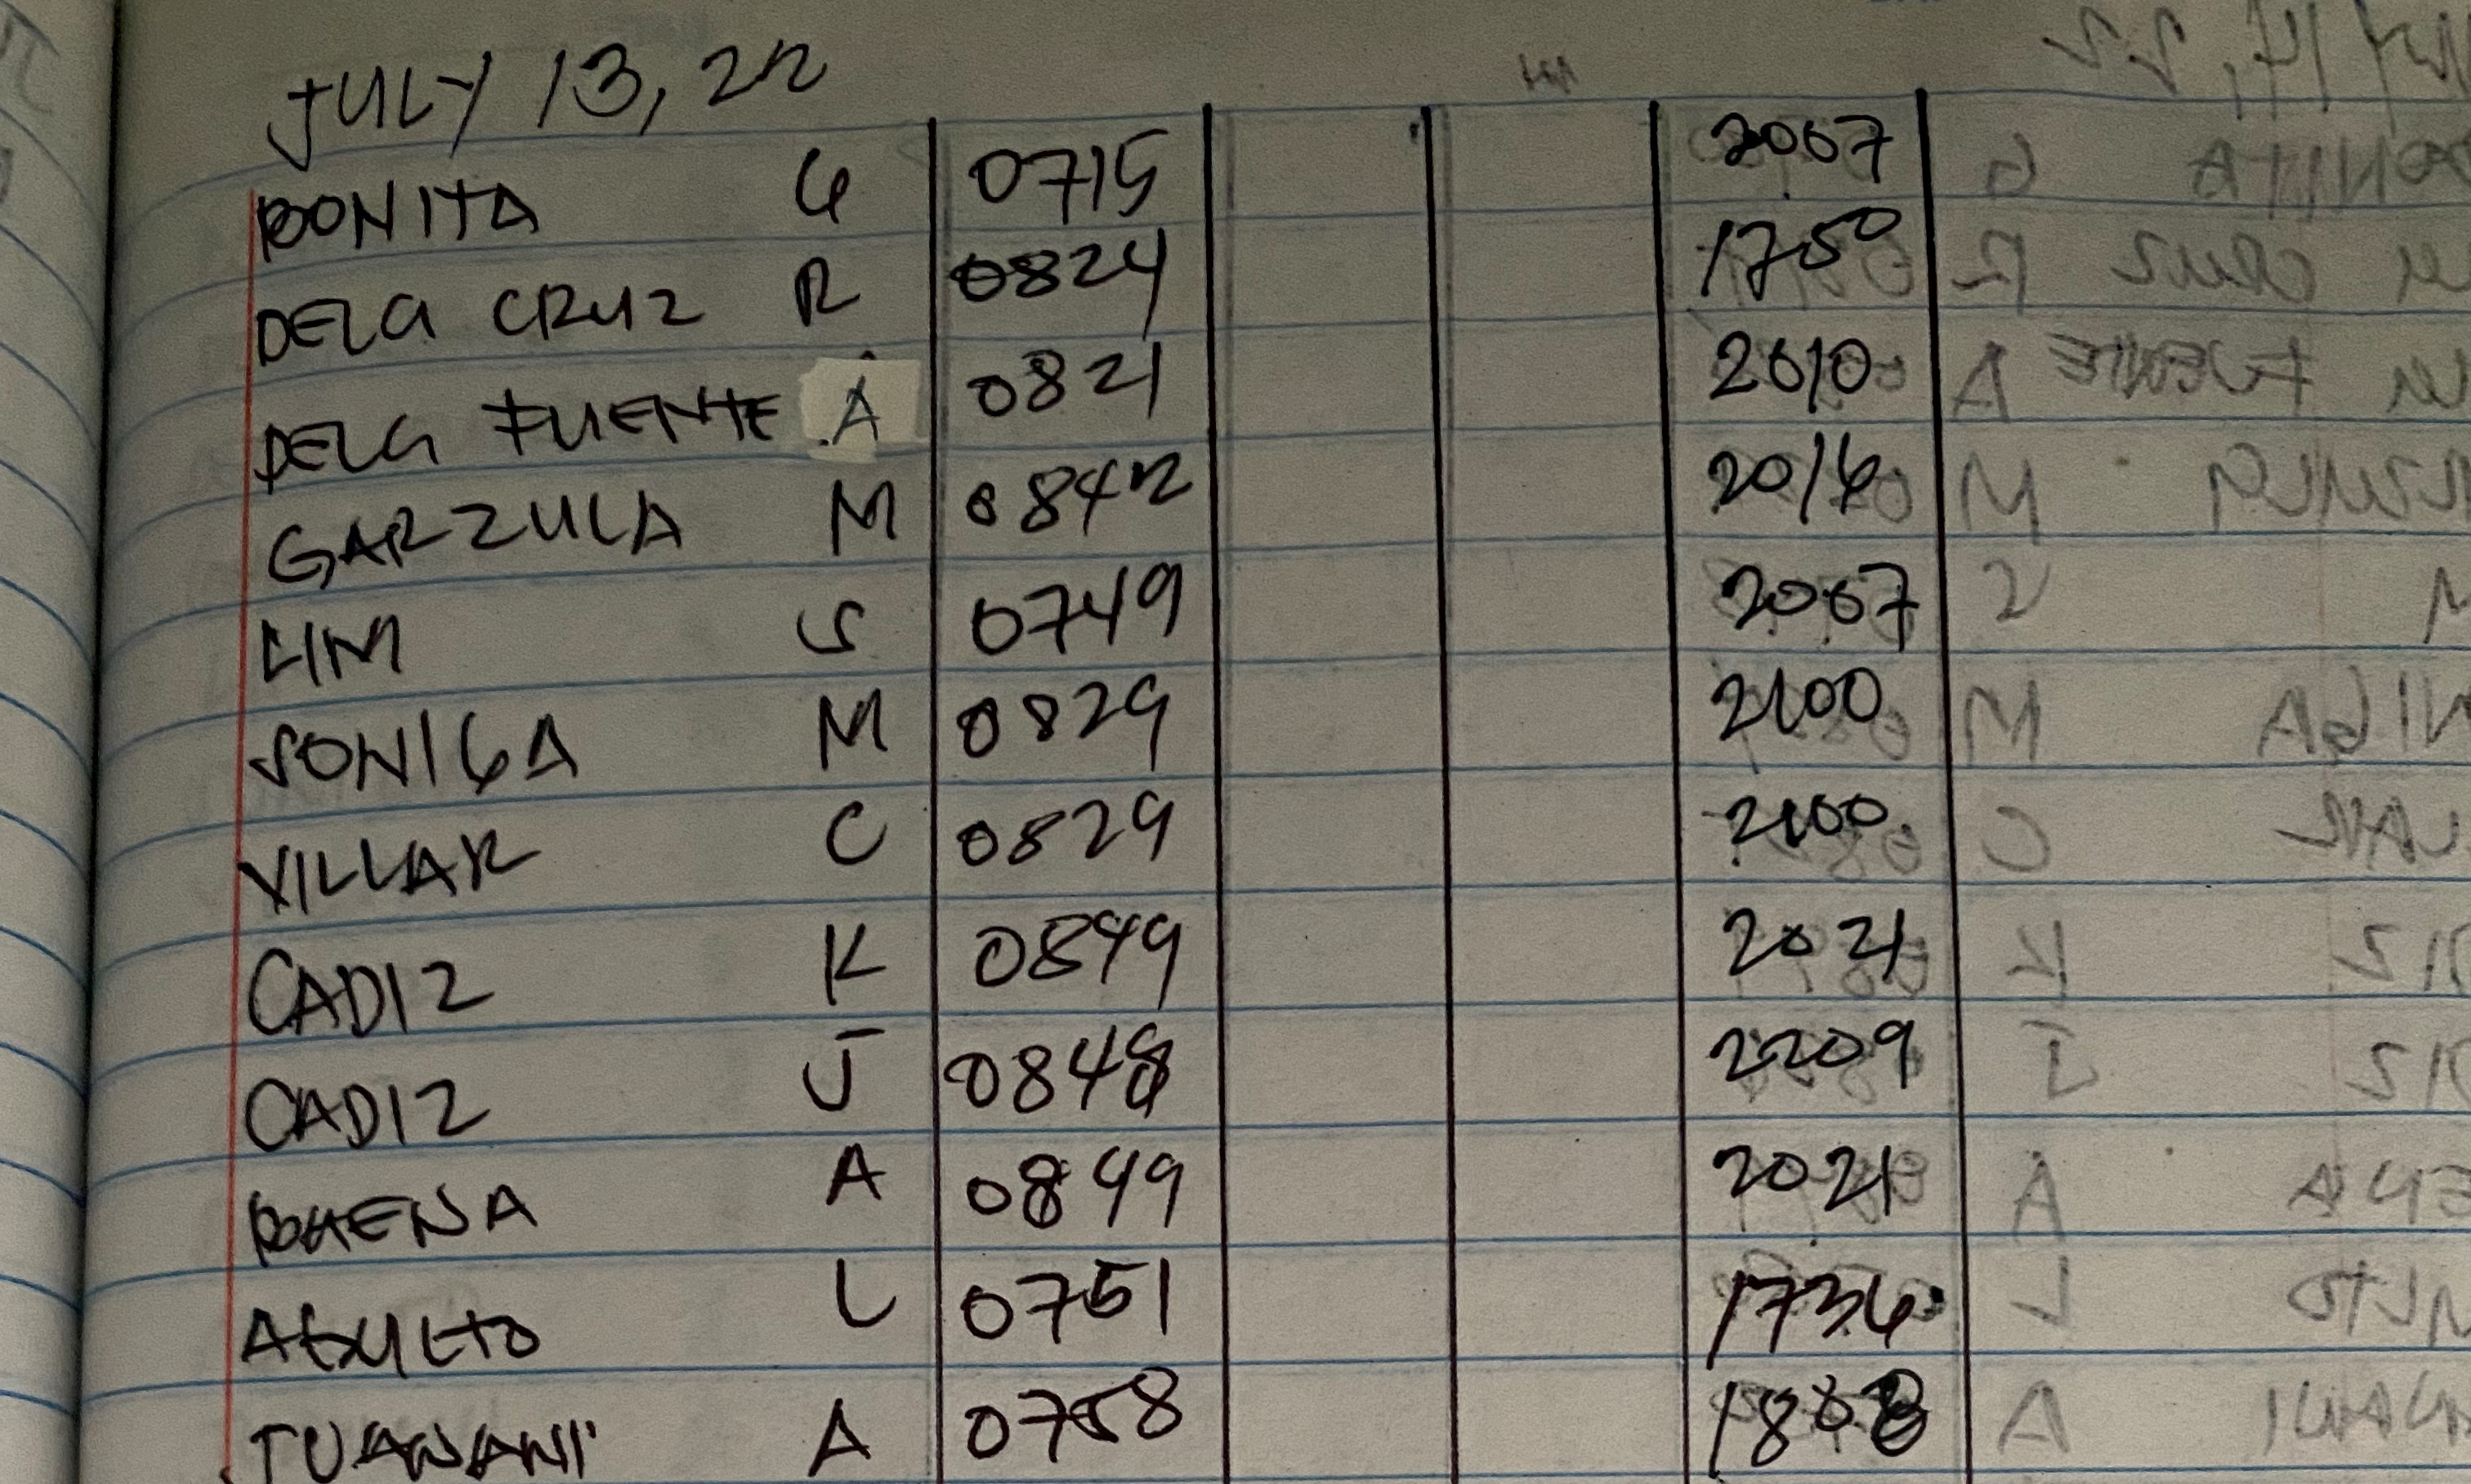 JULY 13, 22
BONITA G 0715 2007
DELA CRUZ R 0824 1750
DELA FUENTE A 0821 2010
GARZULA M 0842 2016
LIM S 0749 2007
SONIGA M 0829 2100
VILLAR C 0829 2100
CADIZ K 0849 2021
CADIZ J 0848 2209
A 0849 2021
L 0751 1736
A 0758 1808